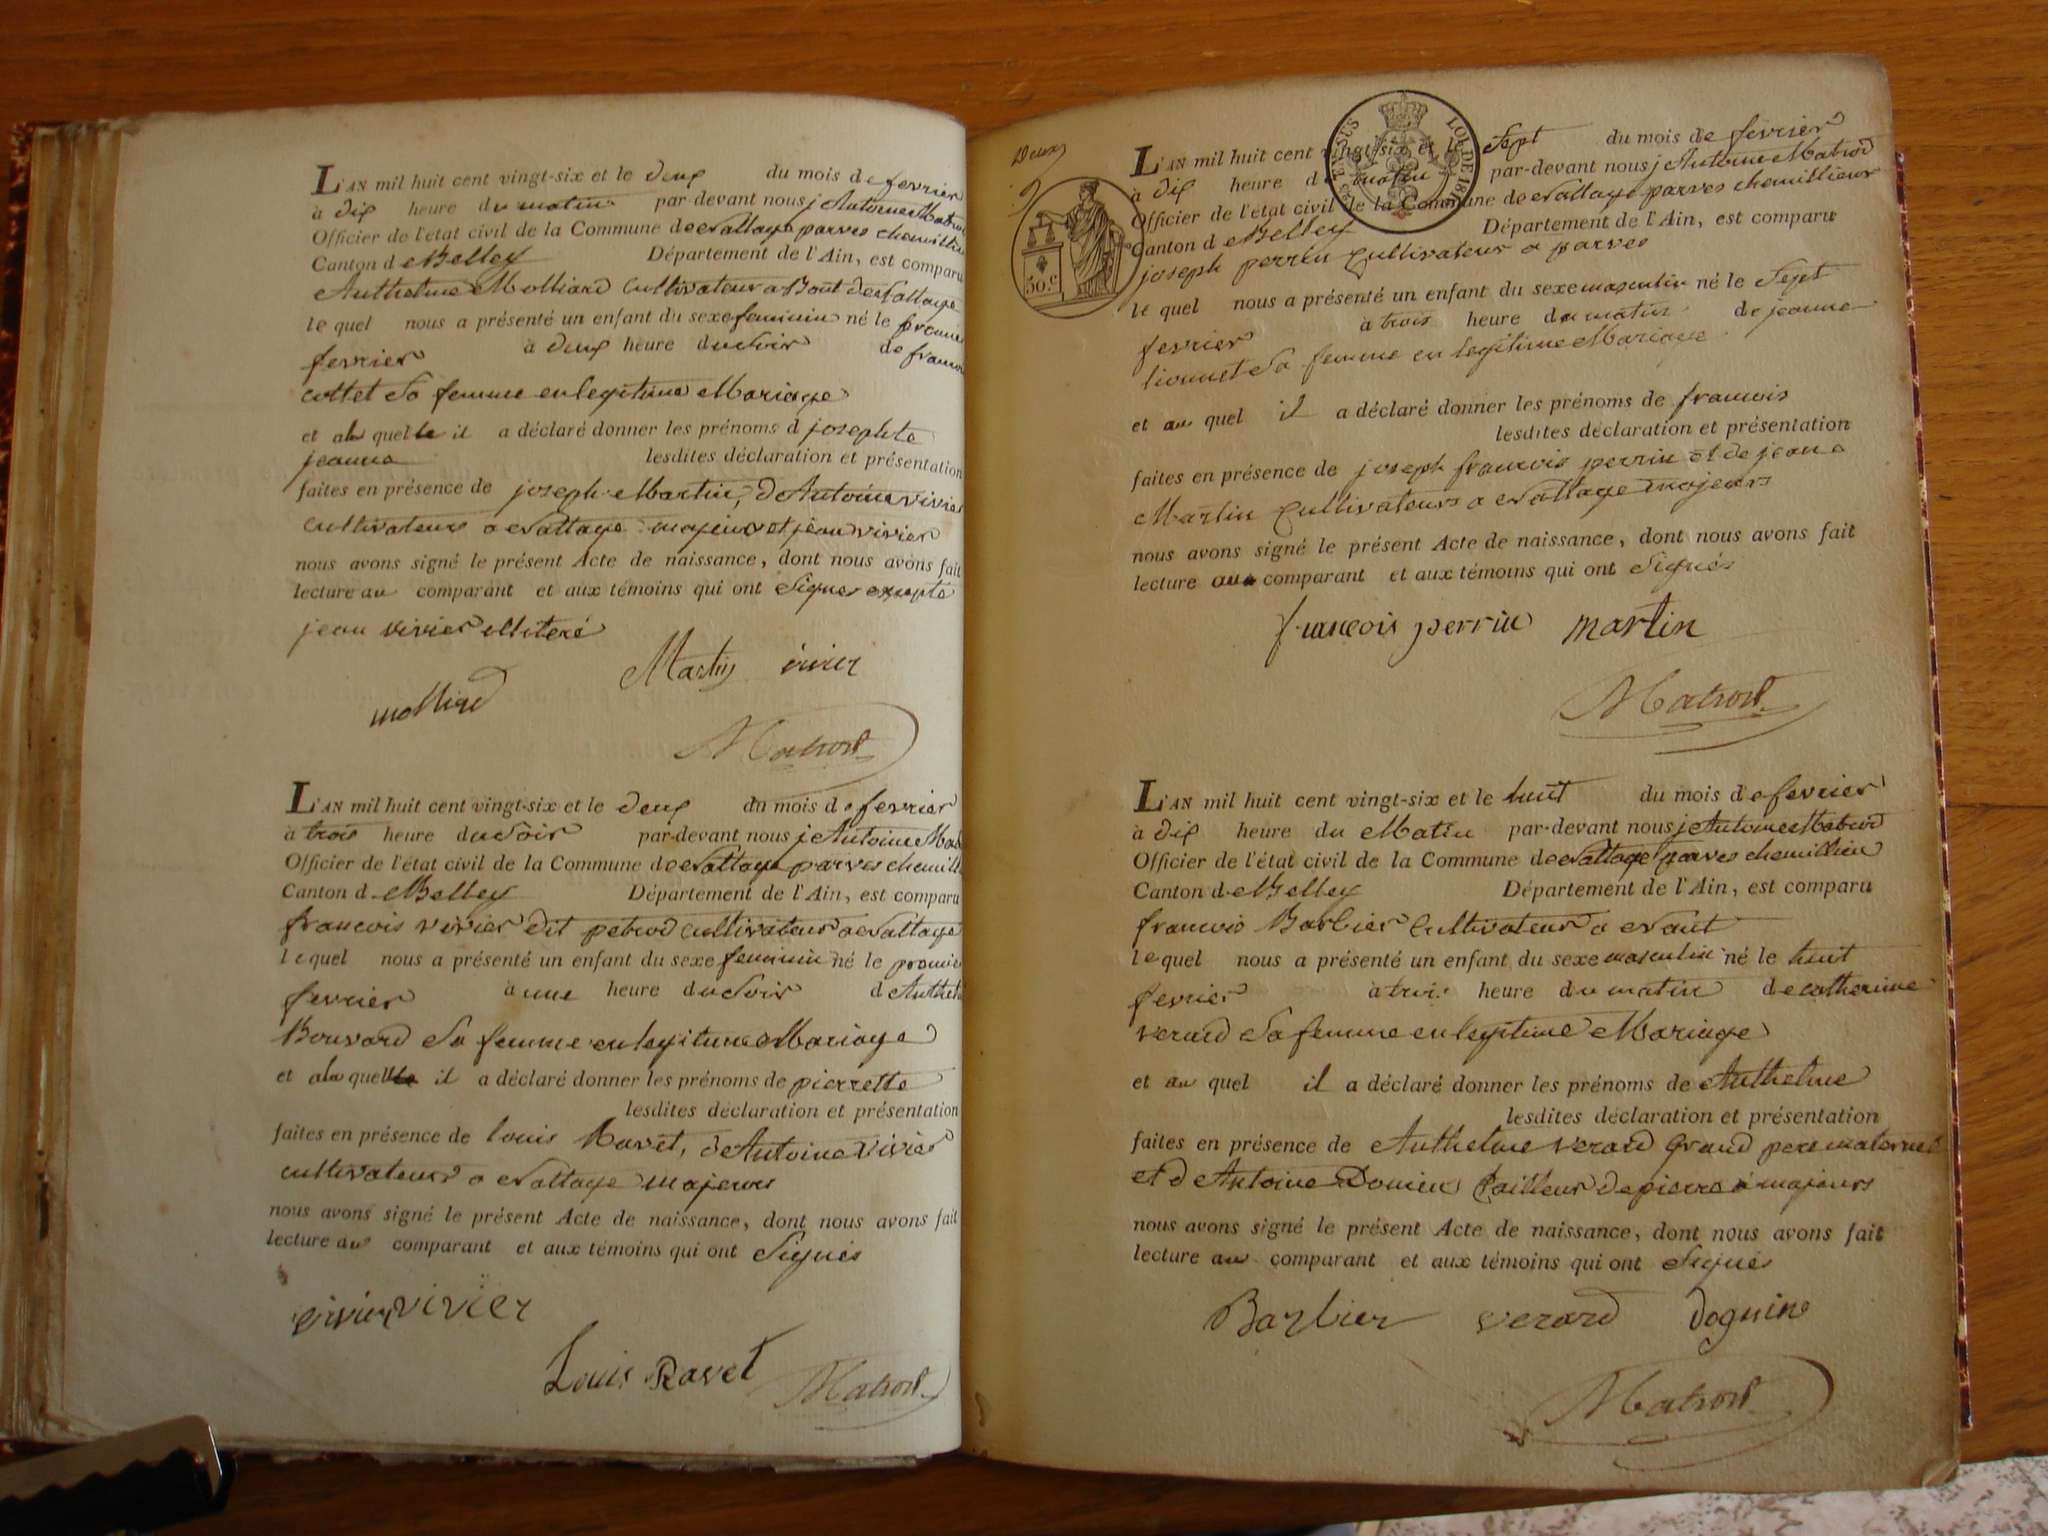 L'AN mil huit cent vingt-six et le deux du mois de fevrier
à dix heure du matin par-devant nous j Antoine Matrod
Officier de l'état civil de la Commune de Nattage parves chemillieu
Canton de Belley Département de l'Ain, est comparu
Anthelme Molliard Cultivateur a Bout de Nattage
le quel nous a présenté un enfant du sexe feminin né le premier
fevrier à deux heure du Soir de
cottet Sa femme en legitime Mariage
et a la quelle il a déclaré donner les prénoms d josephte
jeanne lesdites déclaration et présentation
faites en présence de joseph Martin, d Antoine vivier
Cultivateurs a Nattage majeurs et jean vivier
nous avons signé le présent Acte de naissance, dont nous avons fait
lecture au comparant et aux témoins qui ont Signes excepte
jean vivier illiteré
Martin vivier
molliard
Matrod
L'AN mil huit cent vingt-six et le deux du mois de fevrier
à trois heure du Soir par-devant nous j Antoine Matrod
Officier de l'état civil de la Commune de Nattage parves chemill
Canton de Belley Département de l'Ain, est comparu
francois vivier dit petrod Cultivateur a Nattage
le quel nous a présenté un enfant du sexe feminin né le premie
fevrier à une heure du Soir d Anthel
Bouvard Sa femme en legitime Mariage
et a la quelle il a déclaré donner les prénoms de pierrette
lesdites déclaration et présentation
faites en présence de louis Ravet, d Antoine Vivier
cultivateurs a Nattage majeurs
nous avons signé le présent Acte de naissance, dont nous avons fait
lecture au comparant et aux témoins qui ont Signés
vivier vivier
Louis Ravet Matrod
Deux
TIMBRE
LOI DE 181
50.c
L'AN mil huit cent vingt-six et le Sept du mois de fevrier
à dix heure du matin par-devant nous j Antoine Matrod
Officier de l'état civil de la Commune de Nattage parves chemillieux
Canton d Belley Département de l'Ain, est comparu
joseph perrin Cultivateur a parves
le quel nous a présenté un enfant du sexe masculin né le Sept
fevrier à trois heure du matin de jeanne
lionnet Sa femme en legitime Mariage
et au quel il a déclaré donner les prénoms de francois
lesdites déclaration et présentation
faites en présence de joseph francois perrin et de jean
Martin Cultivateurs a Nattage majeurs
nous avons signé le présent Acte de naissance, dont nous avons fait
lecture au comparant et aux témoins qui ont Signés
françois perrin martin
Matrod
L'AN mil huit cent vingt-six et le huit du mois de fevrier
à dix heure du Matin par-devant nous j Antoine Matrod
Officier de l'état civil de la Commune de Nattage parves chemillieu
Canton de Belley Département de l'Ain, est comparu
francois Barbier Cultivateur a Nant
le quel nous a présenté un enfant du sexe masculin né le huit
fevrier à trois heure du matin de catherine
verard Sa femme en legitime Mariage
et au quel il a déclaré donner les prénoms de Anthelme
lesdites déclaration et présentation
faites en présence de Anthelme verard Grand pere maternel
et d Antoine tailleur de pierre majeurs
nous avons signé le présent Acte de naissance, dont nous avons fait
lecture au comparant et aux témoins qui ont Signés
Barbier verard doguin
Matrod